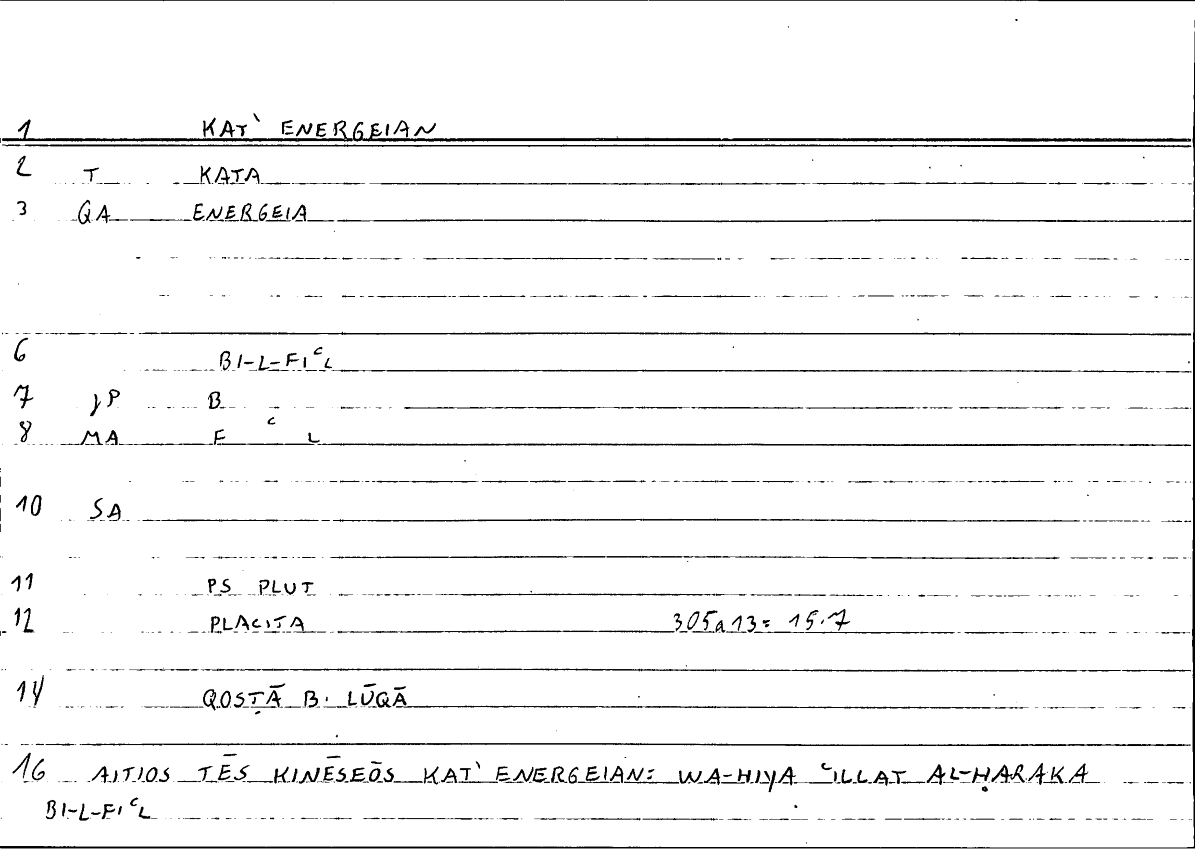 1 KAT` ENERGEIAN
2 T KATA
3 QA ENERGEIA
6 BI-L-FIᶜL
7 JP B
8 MA F ᶜ L
10 SA
11 PS PLUT
12 PLACITA 305a13= 15.7
14 QOSṬĀ B. LŪQĀ
16 AITIOS TĒS KINĒSEŌS KAT` ENERGEIAN: WA-HIYA ᶜILLAT AL-ḤARAKA
BI-L-FIᶜL